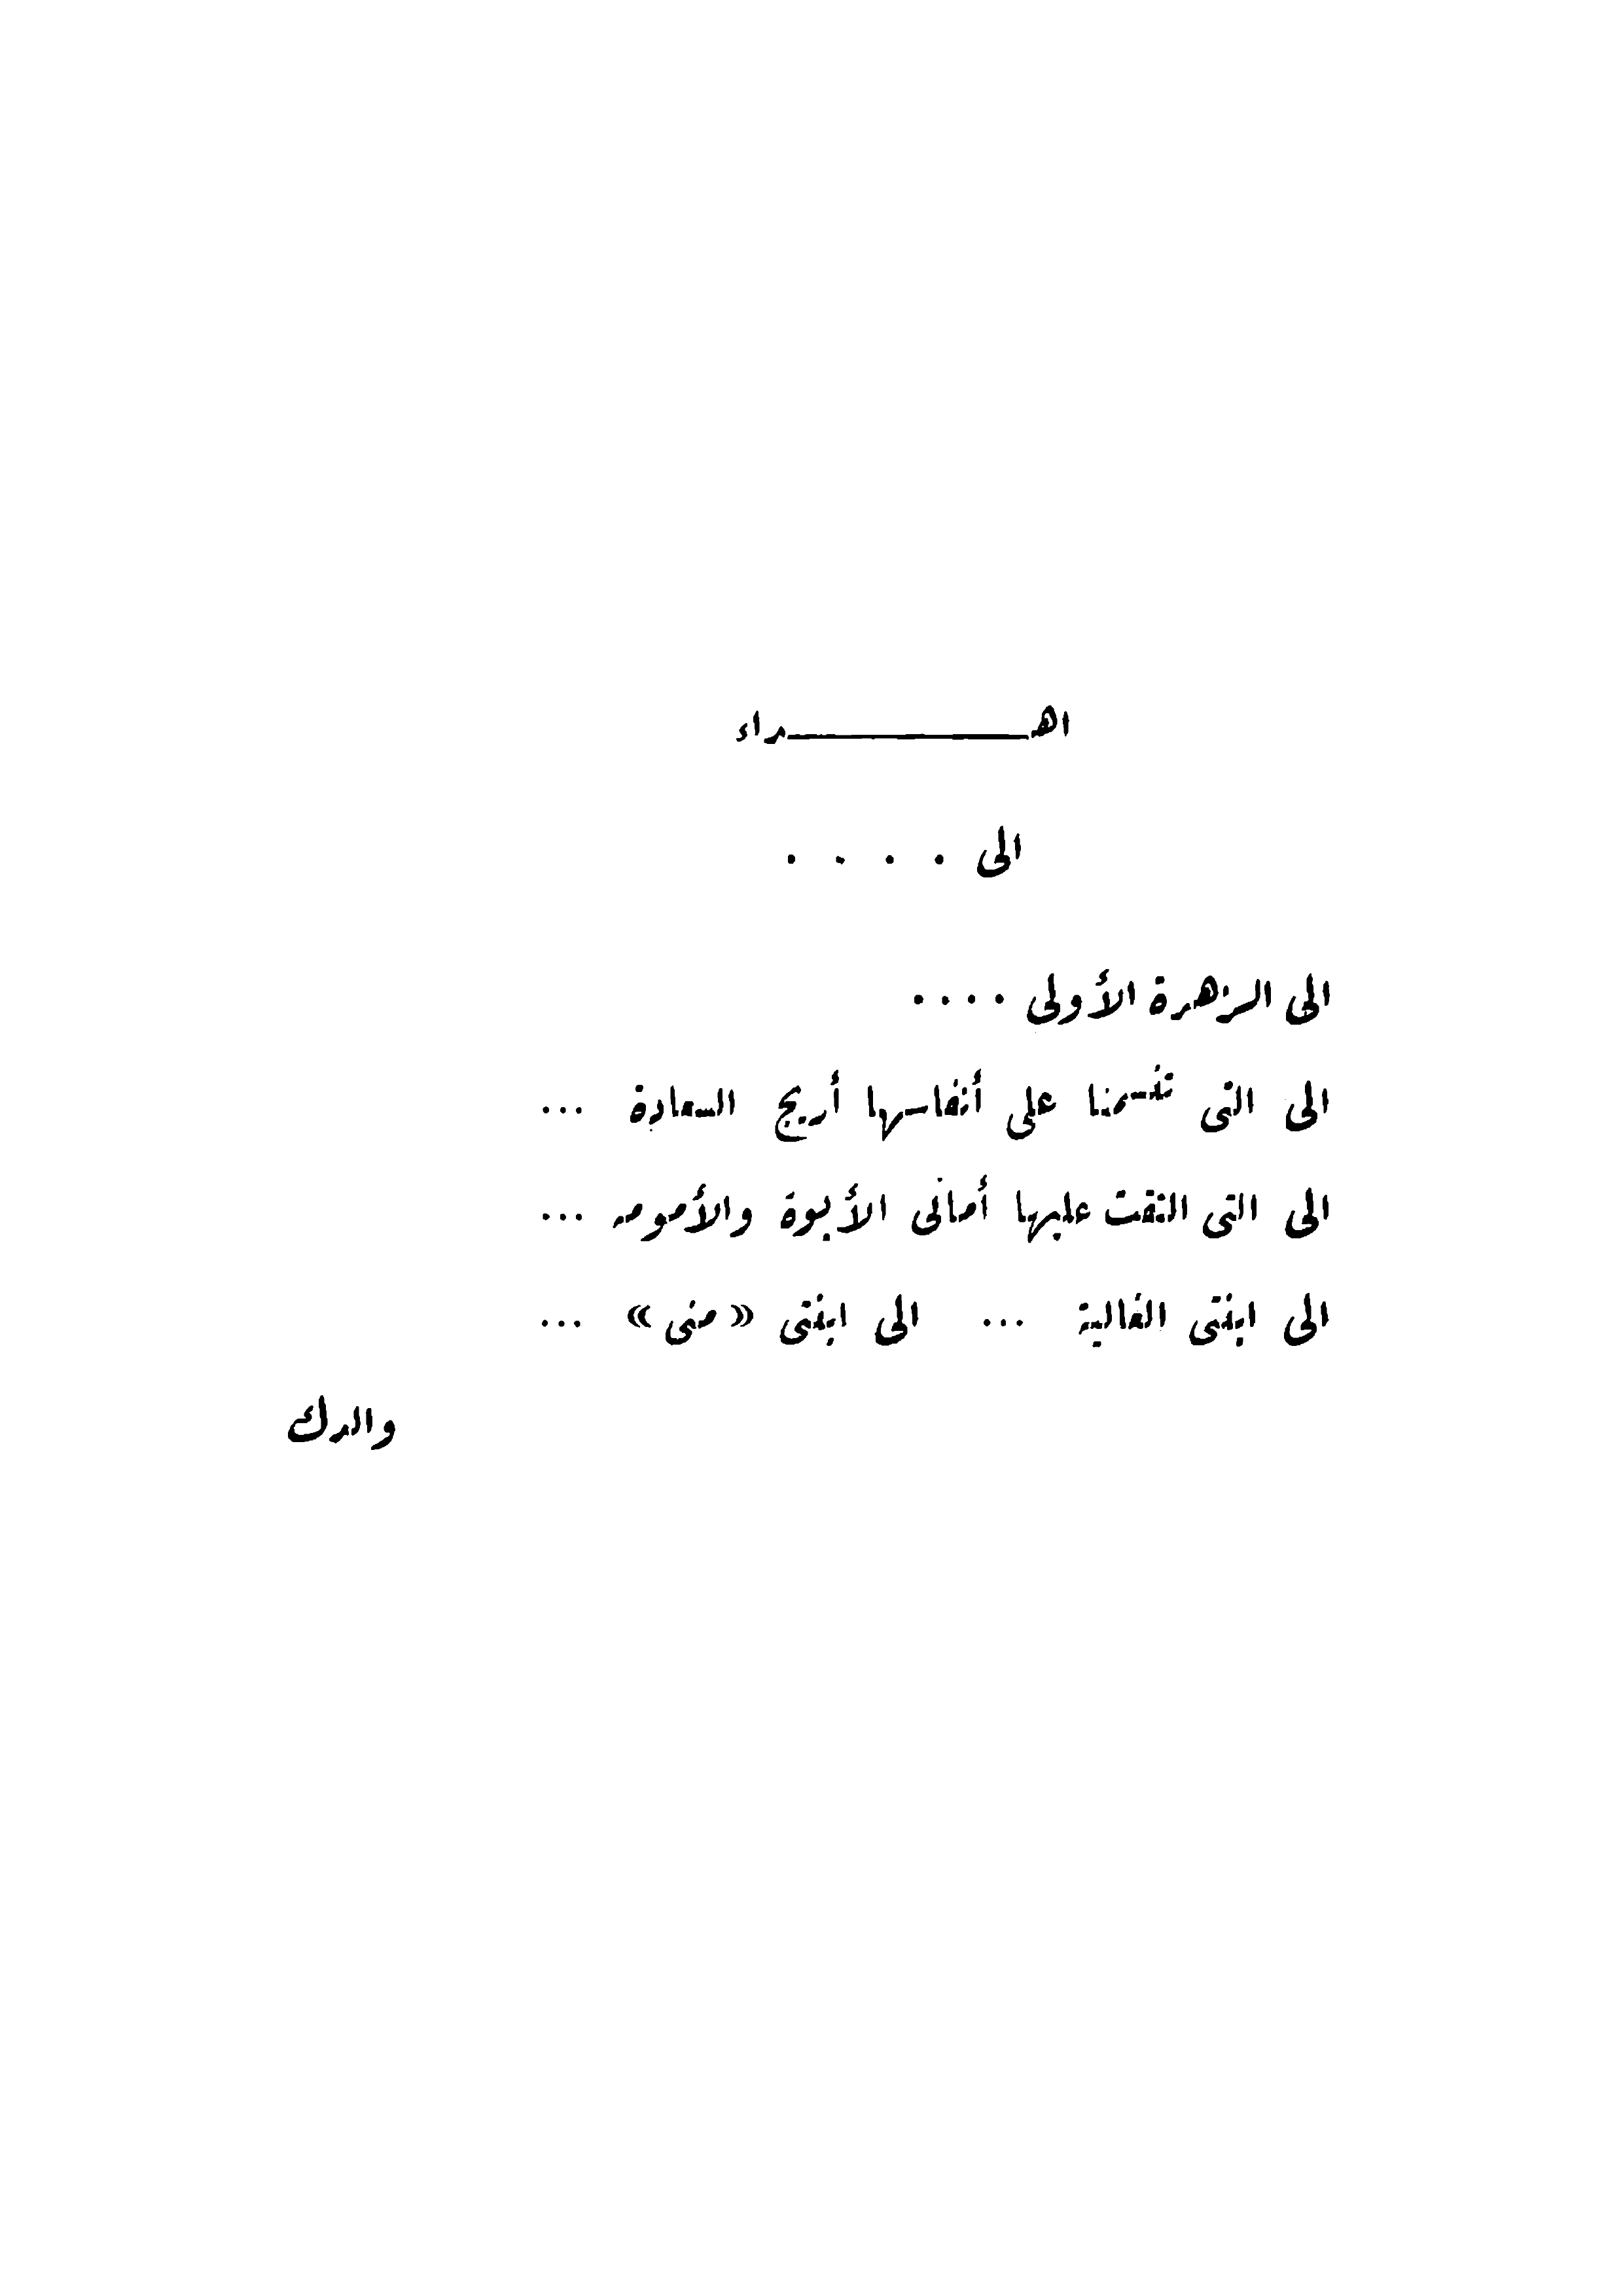 اهـــــــــــداء
الى . . . .
الى الزهرة الأولى ....
الى التى تنسمنا على أنفاسها أريج السعادة ...
الى التى التقت عليها أمانى الأبوة والأمومه ...
الى ابنتى الغالية ... الى ابنتى «منى» ...
والدك